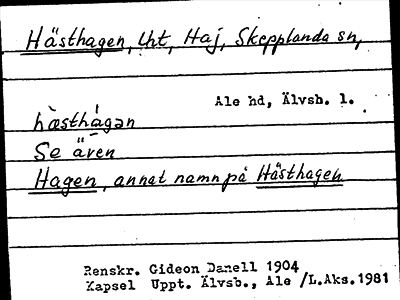 Hästhagen, lht, Haj, Skepplanda sn,
Ale hd, Älvsb. l.
hästhàgan
Se även
Hagen, annat namn på Hästhagen
Renskr. Gideon Danell 1904
Kapsel Uppt. Älvsb., Ale /L.Aks.1981